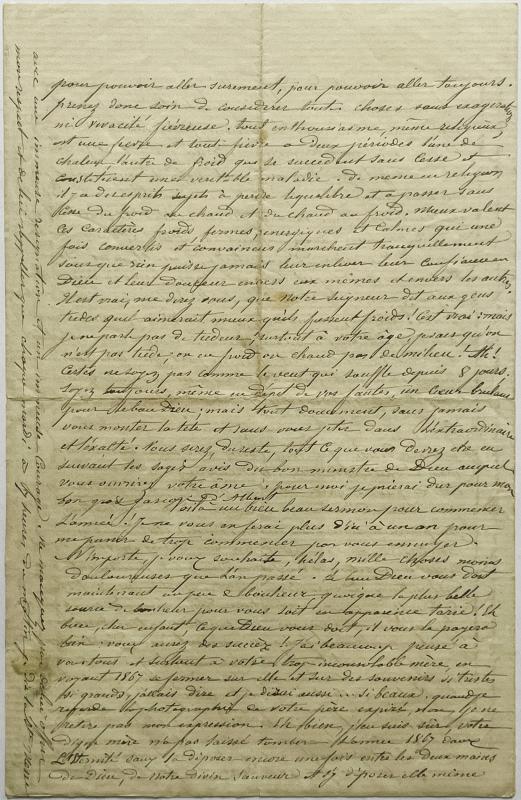 pour pouvoir aller surement, pour pouvoir aller toujours.
prenez donc soin de considerer tout choses sans exageration
ni vivacité fiévreuse. tout enthousiasme, même religieux
est une fievre et tout fievre a deux périodes l'une de
chaleur l'autre de froid qui se succedent sans cesse et
constituent une veritable maladie. De meme en religion
il y a des esprits sujets à perdre l'equilibre et à passer sans
cesse du froid au chaud et du chaud au froid. Mieux valent
ces caractères froids fermes, energiques et calmes qui une
fois convertis et convaincus marchent tranquillement
sans que rien puisse jamais leur enlever leur confiance en
Dieu et leur douceur envers eux mêmes et envers les autres
Il est vrai, me direz vous, que notre seigneur dit aux gens
tiedes qu'il aimerait mieux qu'ils fussent froids! C'est vrai: mais
je ne parle pas de tiedeur, surtout à votre âge, je sais qu'on
n'est pas tiede: on est froid ou chaud pas de milieu! Ah!
Certes ne soyez pas comme le vent qui souffle depuis 8 jours.
Soyez toujours, même en dépit de vos fautes, un Coeur brulant
pour le bon Dieu; mais tout doucement, sans jamais
vous monter la tete et sans vous jeter dans l'extraordinaire
et l'exalté. Vous serez du reste, tout ce que vous devrez être en
suivant les sages avis du bon ministre de Dieu auquel
vous ouvrirez votre âme: pour moi je prierai dur pour mon
bon gros garçon d'Albert
Voilà un bien beau sermon pour commencer
l'année! je ne vous en ferai plus d'ici à un an pour
me punir de trop commencer par vous ennuyer.
N'importe, je vous souhaite, hélas, mille choses moins
douloureuses que l'an passé. Le bon Dieu vous doit
maintenant un peu de bonheur, quoique la plus belle
source de bonheur pour vous soit en apparence tarie! Eh
bien, cher enfant, ce que Dieu vous doit, il vous le payera
bien: vous aurez des succès! J'ai beaucoup pensé à
vous tous et surtout à votre trop inconsolable mère, en
voyant 1867 se fermer sur elle et sur des souvenirs si tristes
si grands, j'allais dire et je dirai aussi... si beaux. quand je
regarde la photographie de votre père expiré non, je ne
retire pas mon expression. Eh bien, j'en suis sûr, votre
digne mère n'a pas laissé tomber l'année 1867 dans
L'Eternité sans la déposer encore une fois entre les deux mains
de Dieu, de notre divin Sauveur et s'y déposer elle même
avec une immense resignation et un immense Courage.
mon respect et
chaque mardi, à 7 heures du matin